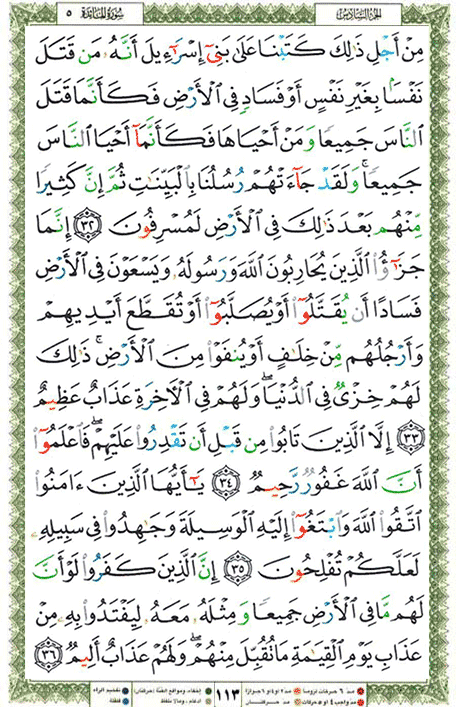 سُورَةُ المَائِدَةِ ٥ الجُزْءُ السَّادِسُ
مِنْ أَجْلِ ذَٰلِكَ كَتَبْنَا عَلَىٰ بَنِىٓ إِسْرَٰٓءِيلَ أَنَّهُۥ مَن قَتَلَ
نَفْسًۢا بِغَيْرِ نَفْسٍ أَوْ فَسَادٍ فِى ٱلْأَرْضِ فَكَأَنَّمَا قَتَلَ
ٱلنَّاسَ جَمِيعًا وَمَنْ أَحْيَاهَا فَكَأَنَّمَآ أَحْيَا ٱلنَّاسَ
جَمِيعًا ۚ وَلَقَدْ جَآءَتْهُمْ رُسُلُنَا بِٱلْبَيِّنَٰتِ ثُمَّ إِنَّ كَثِيرًا
مِّنْهُم بَعْدَ ذَٰلِكَ فِى ٱلْأَرْضِ لَمُسْرِفُونَ ٣٢ إِنَّمَا
جَزَٰٓؤُا۟ ٱلَّذِينَ يُحَارِبُونَ ٱللَّهَ وَرَسُولَهُۥ وَيَسْعَوْنَ فِى ٱلْأَرْضِ
فَسَادًا أَن يُقَتَّلُوٓا۟ أَوْ يُصَلَّبُوٓا۟ أَوْ تُقَطَّعَ أَيْدِيهِمْ
وَأَرْجُلُهُم مِّنْ خِلَٰفٍ أَوْ يُنفَوْا۟ مِنَ ٱلْأَرْضِ ۚ ذَٰلِكَ
لَهُمْ خِزْىٌ فِى ٱلدُّنْيَا ۖ وَلَهُمْ فِى ٱلْءَاخِرَةِ عَذَابٌ عَظِيمٌ
٣٣ إِلَّا ٱلَّذِينَ تَابُوا۟ مِن قَبْلِ أَن تَقْدِرُوا۟ عَلَيْهِمْ ۖ فَٱعْلَمُوٓا۟
أَنَّ ٱللَّهَ غَفُورٌ رَّحِيمٌ ٣٤ يَٰٓأَيُّهَا ٱلَّذِينَ ءَامَنُوا۟
ٱتَّقُوا۟ ٱللَّهَ وَٱبْتَغُوٓا۟ إِلَيْهِ ٱلْوَسِيلَةَ وَجَٰهِدُوا۟ فِى سَبِيلِهِۦ
لَعَلَّكُمْ تُفْلِحُونَ ٣٥ إِنَّ ٱلَّذِينَ كَفَرُوا۟ لَوْ أَنَّ
لَهُم مَّا فِى ٱلْأَرْضِ جَمِيعًا وَمِثْلَهُۥ مَعَهُۥ لِيَفْتَدُوا۟ بِهِۦ مِنْ
عَذَابِ يَوْمِ ٱلْقِيَٰمَةِ مَا تُقُبِّلَ مِنْهُمْ ۖ وَلَهُمْ عَذَابٌ أَلِيمٌ ٣٦
١١٣